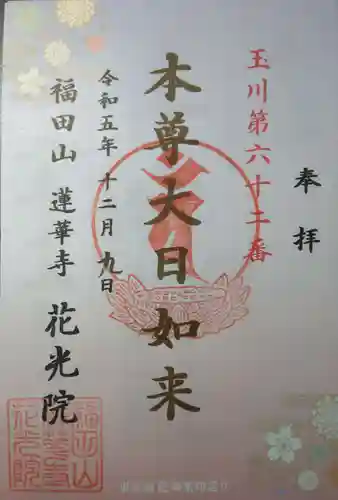 奉拝
玉川第六十二番
本尊大日如来
令和五年 十二月 九日
福田山 蓮華寺 花光院